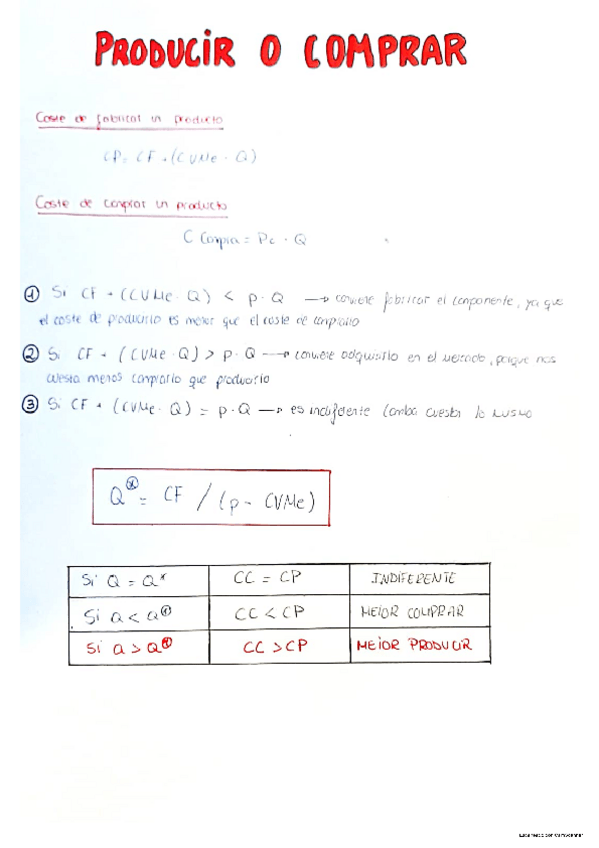 PRODUCIR O COMPRAR
Coste de fabricar un producto
CP = CF + (CVMe · Q)
Coste de comprar un producto
C Compra = Pc · Q
① Si CF + (CVMe · Q) < p · Q → conviene fabricar el componente, ya que
el coste de producirlo es menor que el coste de comprarlo
② Si CF + (CVMe · Q) > p · Q → conviene adquirirlo en el mercado, porque nos
cuesta menos comprarlo que producirlo
③ Si CF + (CVMe · Q) = p · Q → es indiferente (ambas cuestan lo mismo
Q* = CF / (p - CVMe)
Si Q = Q* CC = CP INDIFERENTE
Si Q < Q* CC < CP MEJOR COMPRAR
Si Q > Q* CC > CP MEJOR PRODUCIR